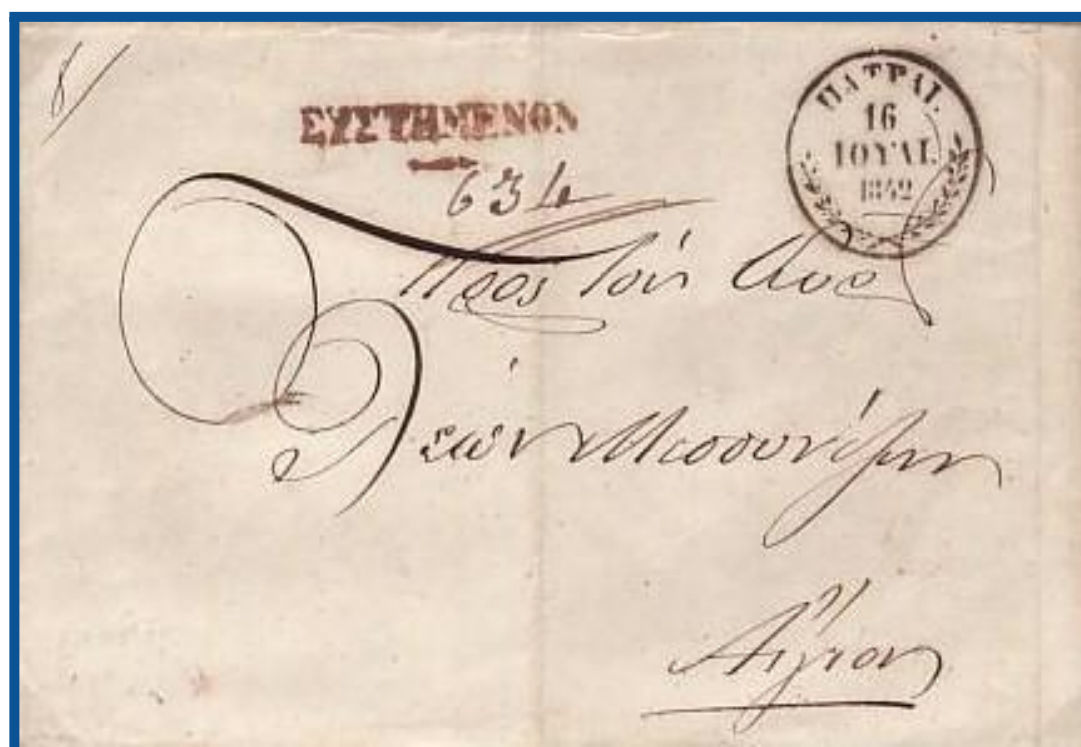 8
ΣΥΣΤΗΜΕΝΟΝ
634
ΠΑΤΡΑΙ.
16
ΙΟΥΛ.
1842
Πρὸς τὸν Κύρ
Λεὼν Μεσσηνέζην
Αἴγιον